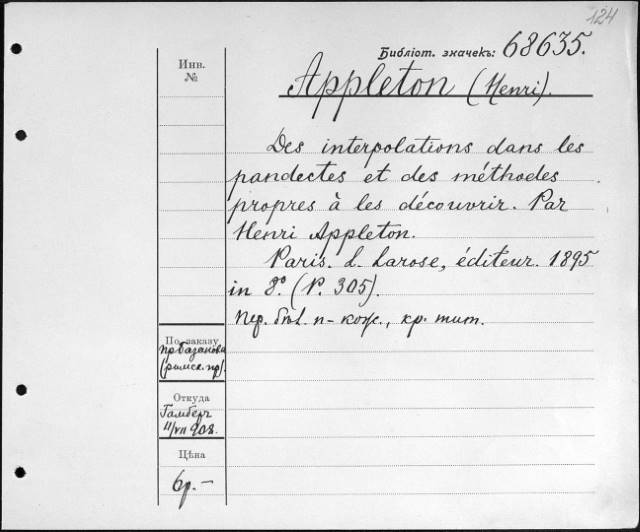 124
Библіот. значекъ: 68635.
Инв.
№
Appleton (Henri).
Des interpolations dans les
pandectes et des méthodes
propres à les découvrir. Par
Henri Appleton.
Paris. L. Larose, éditeur. 1895
in 8.º (P. 305).
Пер. п-кож., кр. тит.
По заказу
пр Базанова
(римск. пр).
Откуда
Гамберъ
11/VII 908.
Цѣна
6р.–